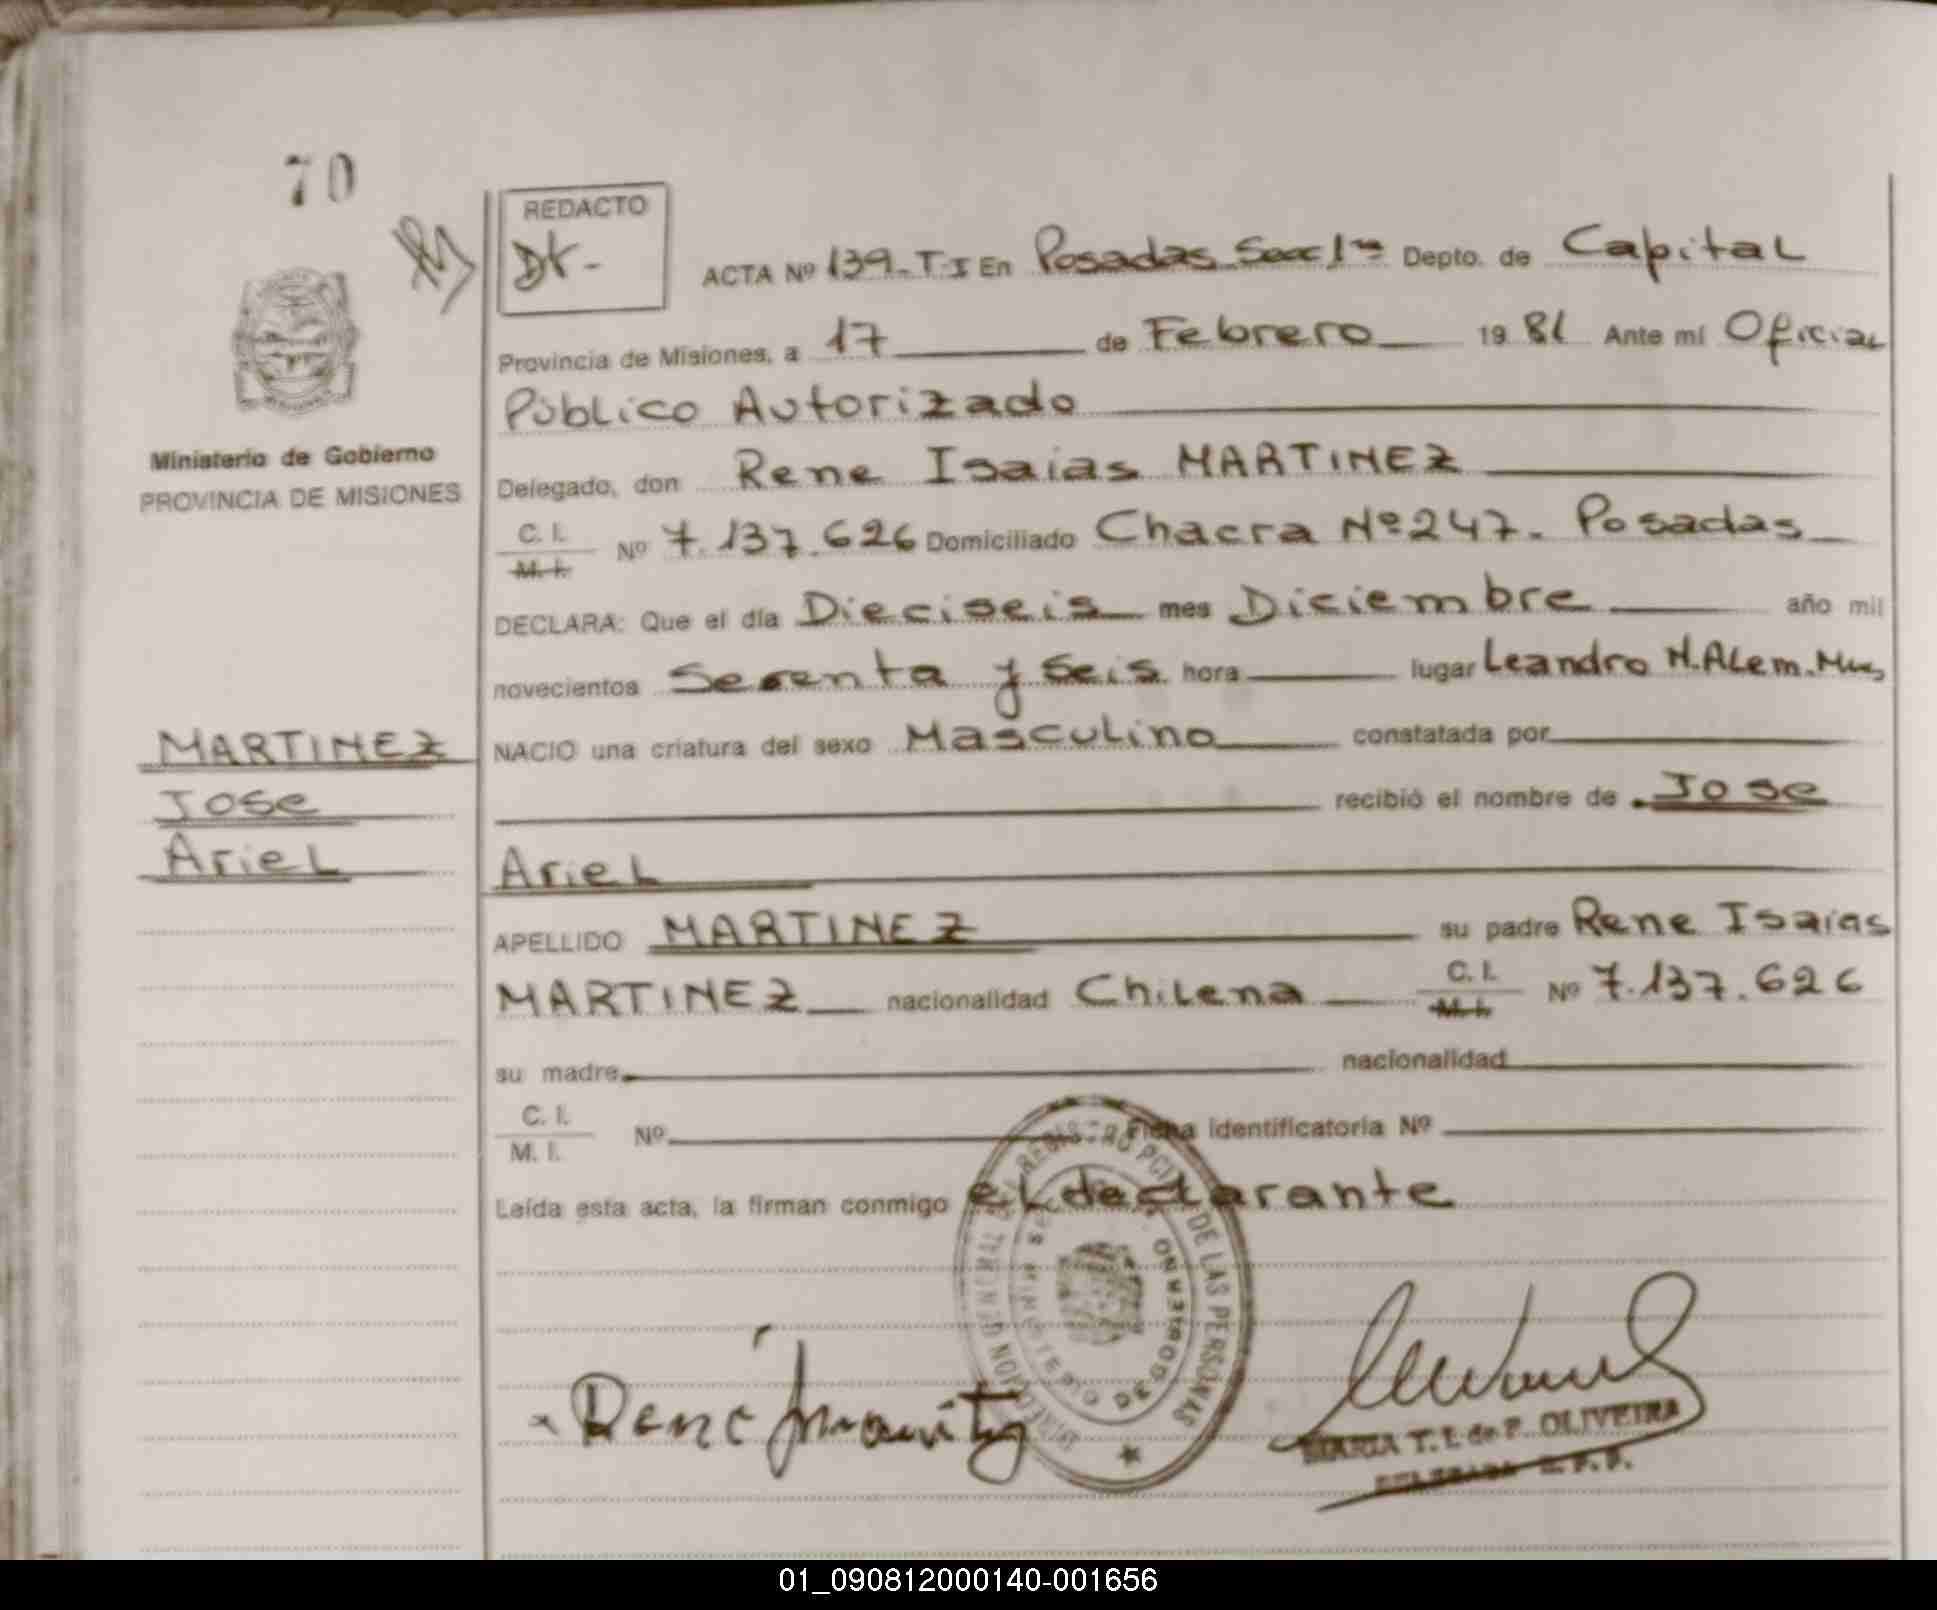 70
REDACTO
Dk-
ACTA Nº 139-T-I En Posadas Secc 1ra Depto. de Capital
Provincia de Misiones, a 17 de Febrero 1981 Ante mí Oficial
Público Autorizado
Ministerio de Gobierno
PROVINCIA DE MISIONES
Delegado, don Rene Isaias MARTINEZ
C. I.
M. I. Nº 7.137.626 Domiciliado Chacra Nº 247- Posadas
DECLARA: Que el día Dieciseis mes Diciembre año mil
novecientos Setenta y Seis hora lugar Leandro N. ALem. Mnes
MARTINEZ
Jose
Ariel
NACIO una criatura del sexo Masculino constatada por
recibió el nombre de Jose
Ariel
APELLIDO MARTINEZ su padre Rene Isaias
MARTINEZ nacionalidad Chilena C. I.
M. I. Nº 7.137.626
su madre nacionalidad
C. I.
M. I. Nº Ficha identificatoria Nº
Leída esta acta, la firman conmigo el declarante
DIRECCION GENERAL DEL REGISTRO PCIAL DE LAS PERSONAS
MINISTERIO DE GOBIERNO
MARIA T. I. de P. OLIVEIRA
01_090812000140-001656